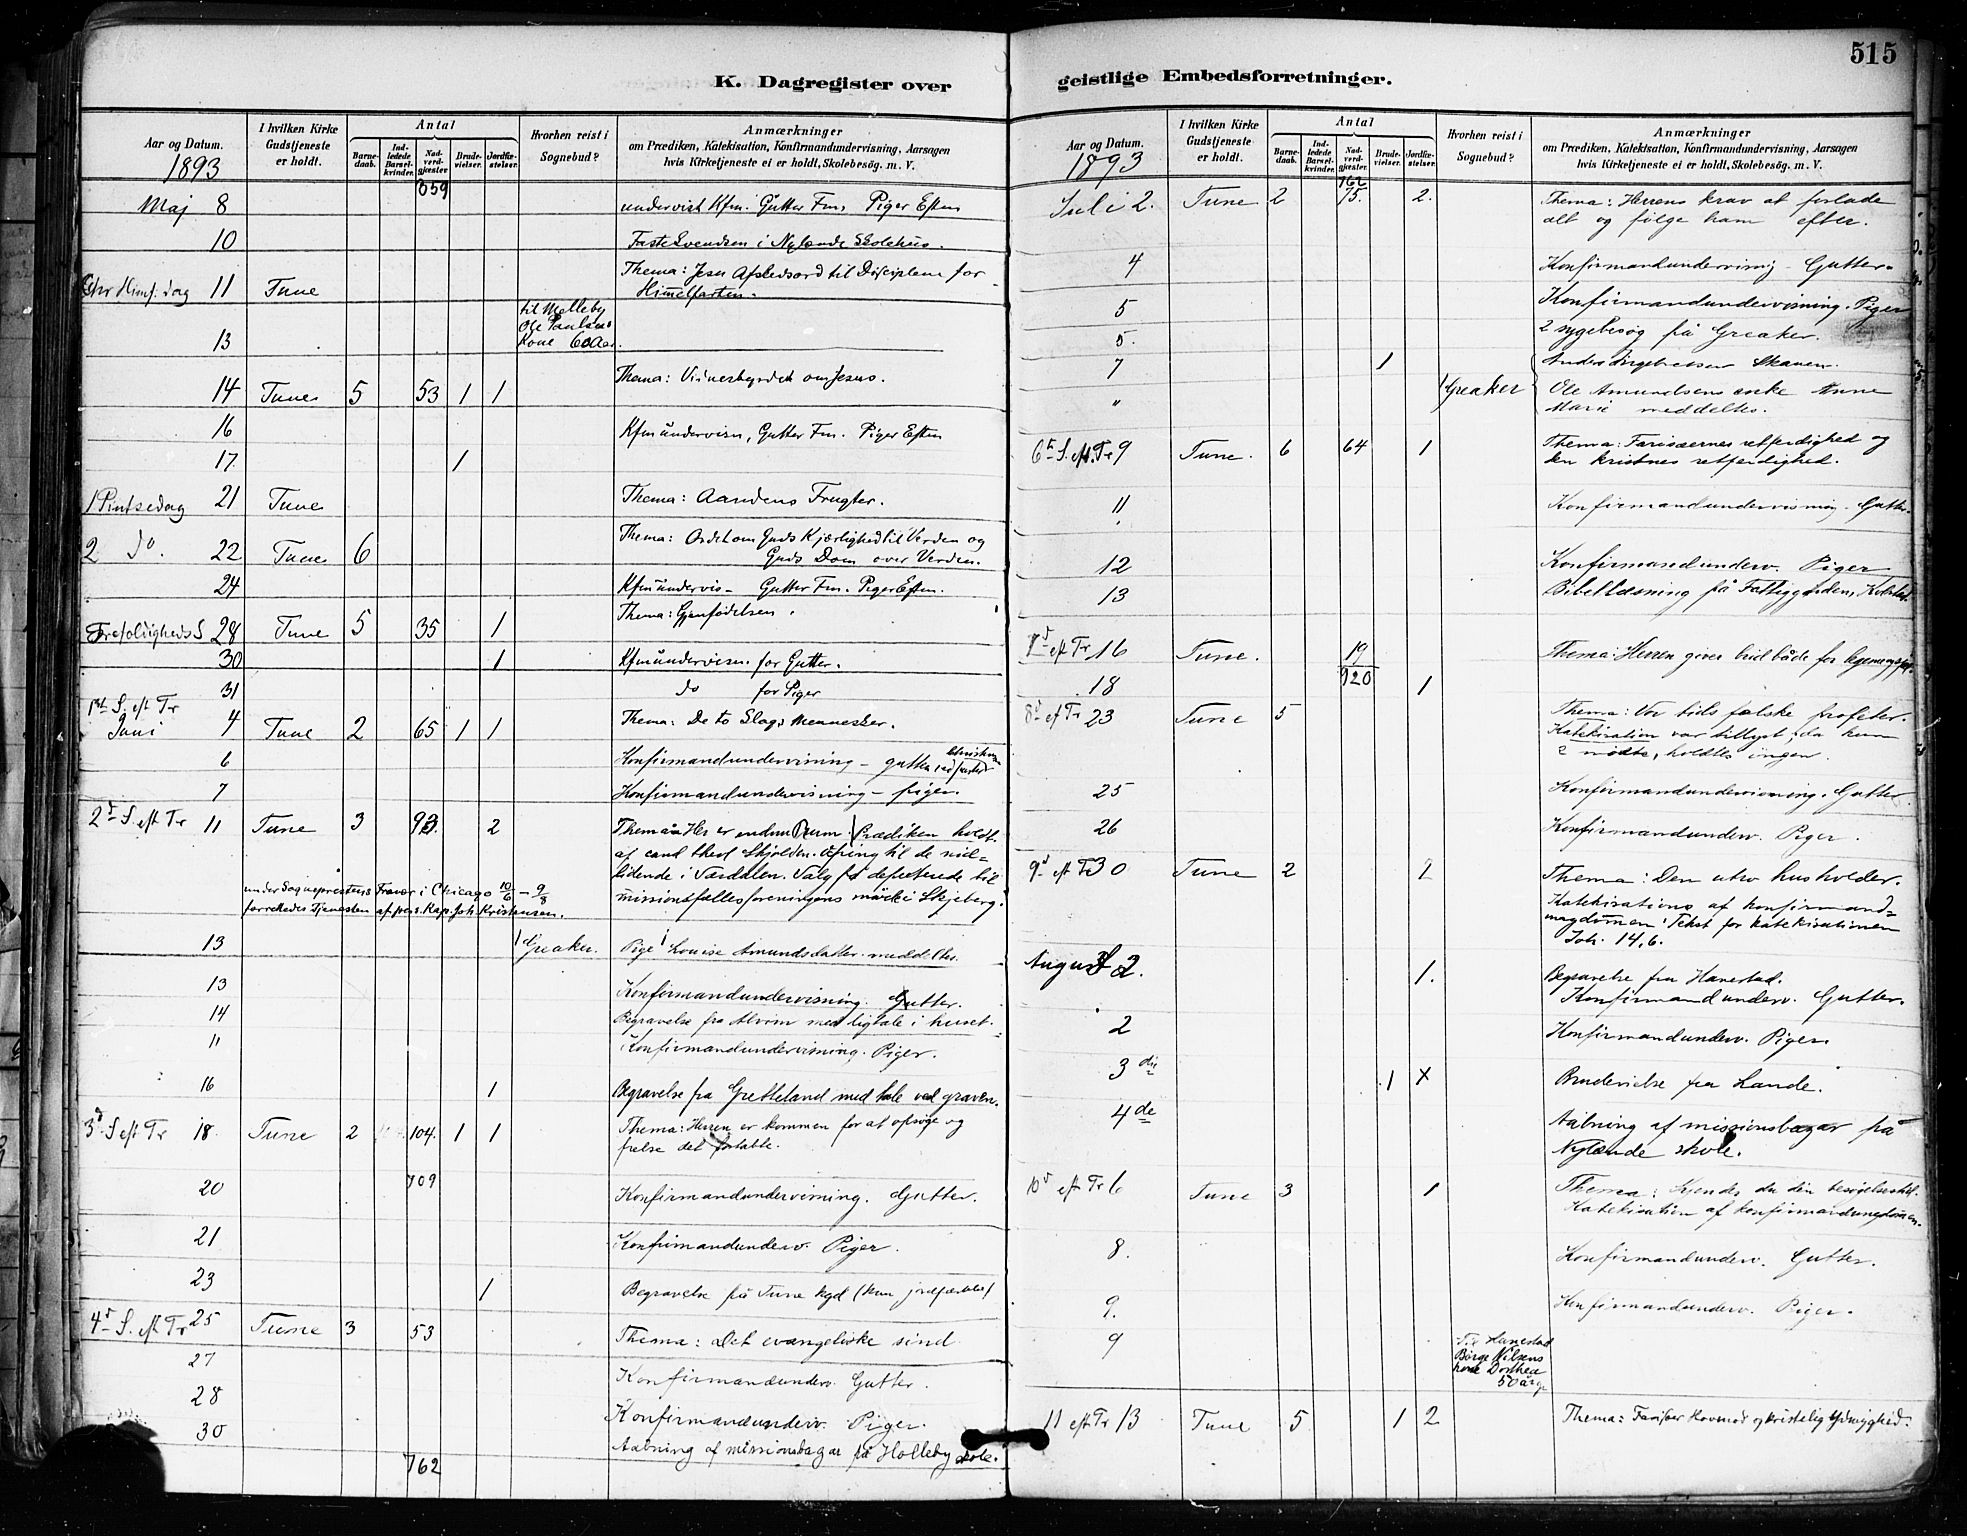 515
K. Dagregister over
Aar og Datum.
1893
I hvilken Kirke
Gudstjeneste
er holdt.
Antal
Barne-
daab.
Ind-
ledede
Barsel-
kvinder.
Nad-
verd-
gjæster
Brude-
vielser.
Jordfæ-
stelser.
Hvorhen reist i
Sognebud?
Anmærkninger
om Prædiken, Katekisation, Konfirmandundervisning, Aarsagen
hvis Kirketjeneste ei er holdt, Skolebesøg. m. V.
359
Maj 8 undervist Kfm. Gutter Fm. Piger Eftm
10 i Nylende Skolehus.
Chr Himf. dag 11 Tune Thema: Jesu Afskedsord til Disciplene før
Himmelfarten.
13 til Melleby
Ole Paulsens
Kone 60 Aar.
14 Tune 5 53 1 1 Thema: Vidnesbyrdet om Jesus.
16 Kfmundervisn, Gutter Fm. Piger Eftm
17. 1
1 Pintsedag 21 Tune Thema: Aandens Frugter.
2 do. 22 Tune 6 Thema: Ordet om Guds Kjærlighed til Verden og
Guds Dom over Verden.
24 Kfmundervis- Gutter Fm. Piger Eftm.
Trefoldigheds S 28 Tune 5 35 1 Thema: Gjenfødelsen.
30 1 Kfmundervisn. for Gutter.
31 do for Piger
1ste S. eft Tr
Juni 4 Tune 2 65 1 1 Thema: De to Slags Mennesker.
6 Konfirmandundervisning - gutter
7 Konfirmandundervisning - piger.
2d S. eft Tr 11 Tune 3 93. 2 Thema: Her er endnu Rum. Prædiken holdt
af cand theol Skjolden. Ofring til de nød-
lidende i Værdalen. Valg på deputerede til
missionsfællesforeningens møde i Skjeberg.
under Sogneprestens Fravær i Chicago 10/6 - 9/8
forrettedes Tjenesten af pers. Kap. Joh. Kristensen.
13 Greaker. Pige Louise Amundsdatter meddeltes.
13 Konfirmandundervisning. Gutter.
14 Begravelse fra Alvim med ligtale i huset.
" Konfirmandundervisning. Piger.
16 1 Begravelse fra Gretteland med tale ved graven.
3d S eft Tr 18. Tune 2 104. 1 1 Thema: Herren er kommen for at opsøge og
frelse det fortabte.
709
20 Konfirmandundervisning. Gutter.
21 Konfirmandunderv. Piger.
23 1 Begravelse på Tune kgd (kun jordfæstelse)
4d S. eft Tr 25 Tune 3 53 Thema: Det evangeliske sind
27 Konfirmandunderv. Gutter.
28 Konfirmandunderv. Piger.
30 Aabning af missionsbazar på Holleby skole.
762
geistlige Embedsforretninger.
Aar og Datum.
1893
I hvilken Kirke
Gudstjeneste
er holdt.
Antal
Barne-
daab.
Ind-
ledede
Barsel-
kvinder.
Nad-
verd-
gjæster
Brude-
vielser.
Jordfæ-
stelser.
Hvorhen reist i
Sognebud?
Anmærkninger
om Prædiken, Katekisation, Konfirmandundervisning, Aarsagen
hvis Kirketjeneste ei er holdt, Skolebesøg. m. V.
762
Juli 2. Tune 2 75. 2. Thema: Herrens krav at forlade
alt og følge ham efter.
4 Konfirmandundervisnig - Gutter.
5 Konfirmandundervisning. Piger
5. 2 sygebesøg på Greaker.
7 1 Anders Ingebretsen Skaven.
" Greaker Ole Amundsens enke Anne
Marie meddeltes.
6te S. eft. Tr 9 Tune. 6 64 1 Thema: Farisæernes retfærdighed og
den kristnes retfærdighed.
11 Konfirmandundervisning. Gutter.
12 Konfirmandunderv. Piger
13 Bibellæsning på Fattiggården,
7d eft Tr 16 Tune. 19 Thema: Herren giver brød både for
920
18 1
8d ef Tr 23 Tune 5 Thema: Vor tids falske profeter.
Katekisation var tillyst, da kun
2 mødte, holdtes ingen.
25 Konfirmandundervisning. Gutter.
26 Konfirmandunderv. Piger.
9d eft Tr 30 Tune 2 2 Thema: Den utro husholder.
Katekisations af konfirmand-
ungdommen. Tekst for katekisationen
Joh. 14,6.
August 2. 1. Begravelse fra Hanestad.
Konfirmandunderv. Gutter.
2 Konfirmandunderv. Piger.
3 die 1 X Brudevielse fra Lande.
4de Aabning af missionsbazar på
Nylænde skole.
10d eft Tr 6 Tune 3 1 Thema: Kjendes du din besøgelsestid.
Katekisation af konfirmandungdommen.
8. Konfirmandunderv. Gutter.
9. Konfirmandunderv. Piger.
9 Til Hanestad
Børge Nilsens
kone Dorthea
50 årg
11 eft Tr 13 Tune 5 1 2 Thema: Farisæer Hovmod og kristelig Ydmyghed.